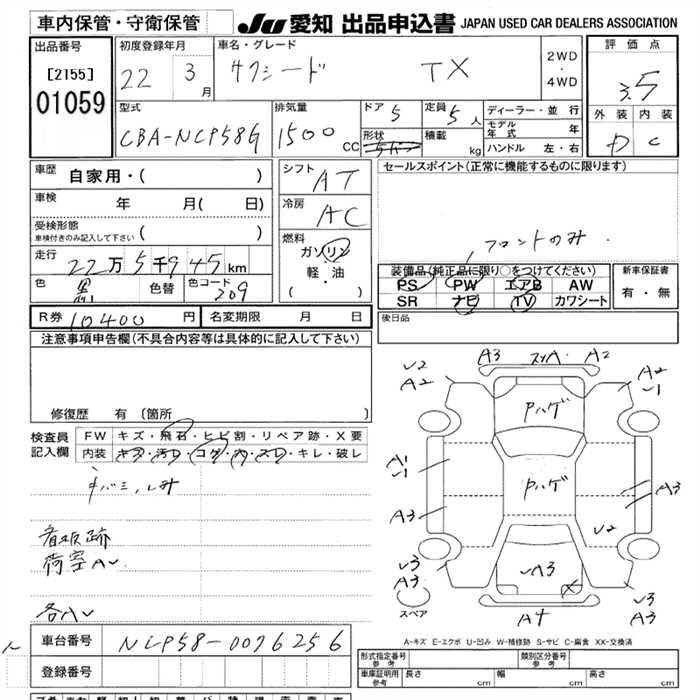 車内保管・守衛保管
JU 愛知 出品申込書 JAPAN USED CAR DEALERS ASSOCIATION
出品番号
[2155]
01059
初度登録年月
22 3月
車名・グレード
サクシード TX
2WD
・
4WD
評価点
3.5
外装 内装
D C
型式
CBA-NCP58G
排気量
1500 cc
ドア 5
定員 5人
形状
積載 kg
ディーラー・並行
モデル年式 年
ハンドル 左・右
車歴 自家用・( )
車検 年 月( 日)
受検形態
車検付きのみ記入して下さい ( )
走行 22万5千945km
色 黒 色替 色コード 209
シフト AT
冷房 AC
燃料
ガソリン
軽・油
( )
セールスポイント(正常に機能するものに限ります)
フロントのみ
装備品(純正品に限り○をつけてください)
PS PW エアB AW
SR ナビ TV カワシート
新車保証書
有・無
R券 10400円 名変期限 月 日
後日品
注意事項申告欄(不具合内容等は具体的に記入して下さい)
修復歴 有 [箇所 ]
検査員記入欄
FW キズ・飛石・ヒビ割・リペア跡・X要
内装 キズ・汚レ・コゲ・穴・スレ・キレ・破レ
看板跡
荷室A
各A
A3 A2
A2 A1
Pハゲ
Pハゲ
A1
A3 A3
A3
A3 A3
A4
スペア
A-キズ E-エクボ U-凹み W-補修跡 S-サビ C-腐食 XX-交換済
車台番号 NCP58-0076256
登録番号
形式指定番号 参考 類別区分番号 参考
車庫証明用 参考 長さ cm 幅 cm 高さ cm